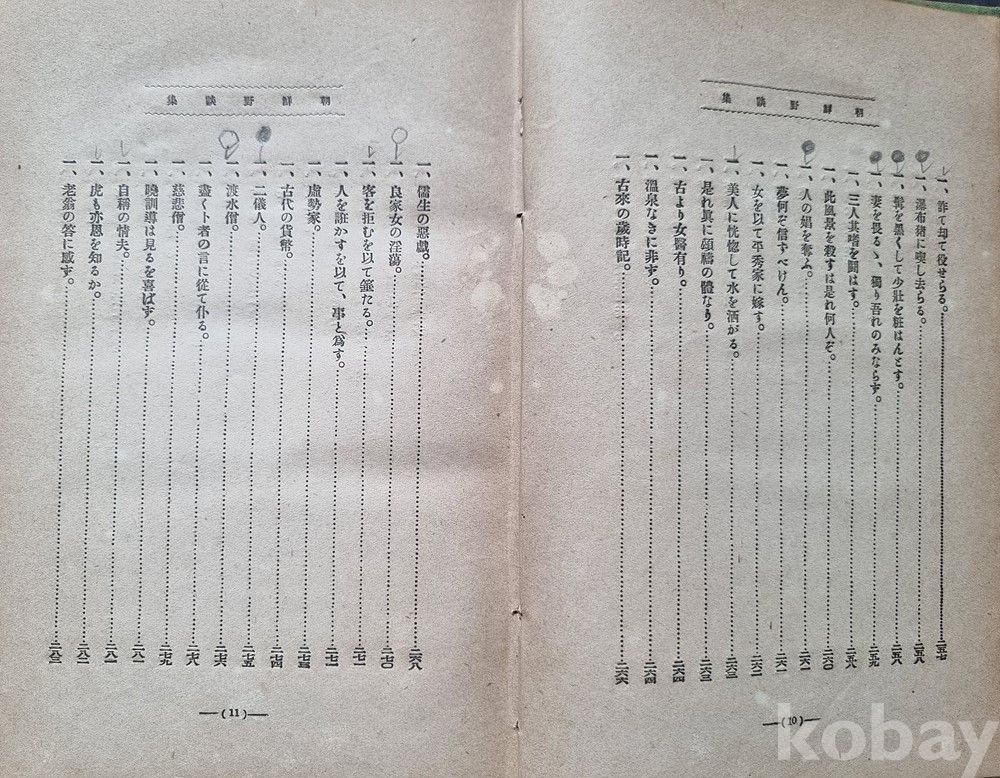 朝鮮野談集
一、詐て却て役せらる。 二五七
一、瀑布猪に喫し去らる。 二五八
一、髯を墨くして少壯を粧はんとす。 二五八
一、妻を畏るゝ、獨り吾れのみならす。 二五九
一、三人其嗜を鬪はす。 二五八
一、此風景を殺すは是れ何人ぞ。 二六〇
一、人の娼を奪ふ。 二六一
一、夢何ぞ信すべけん。 二六一
一、女を以て平秀家に嫁す。 二六二
一、美人に恍惚して水を洒がる。 二六三
一、是れ眞に頌禱の體なり。 二六三
一、古より女醫有り。 二六四
一、溫泉なきに非す。 二六四
一、古來の歲時記。 二六六
(10)
朝鮮野談集
一、儒生の惡戲。 二六八
一、良家女の淫蕩。 二七〇
一、客を拒むを以て鑑たる。 二七一
一、人を誑かすを以て、事と爲す。 二七一
一、虛勢家。 二七三
一、古代の貨幣。 二七四
一、二儀人。 二七五
一、渡水僧。 二七六
一、盡く卜者の言に從て仆る。 二七八
一、慈悲僧。 二七九
一、曉訓導は見るを喜ばす。 二八一
一、自稱の情夫。 二八一
一、虎も亦恩を知るか。 二八二
一、老翁の答に感ず。 二八三
(11)
kobay